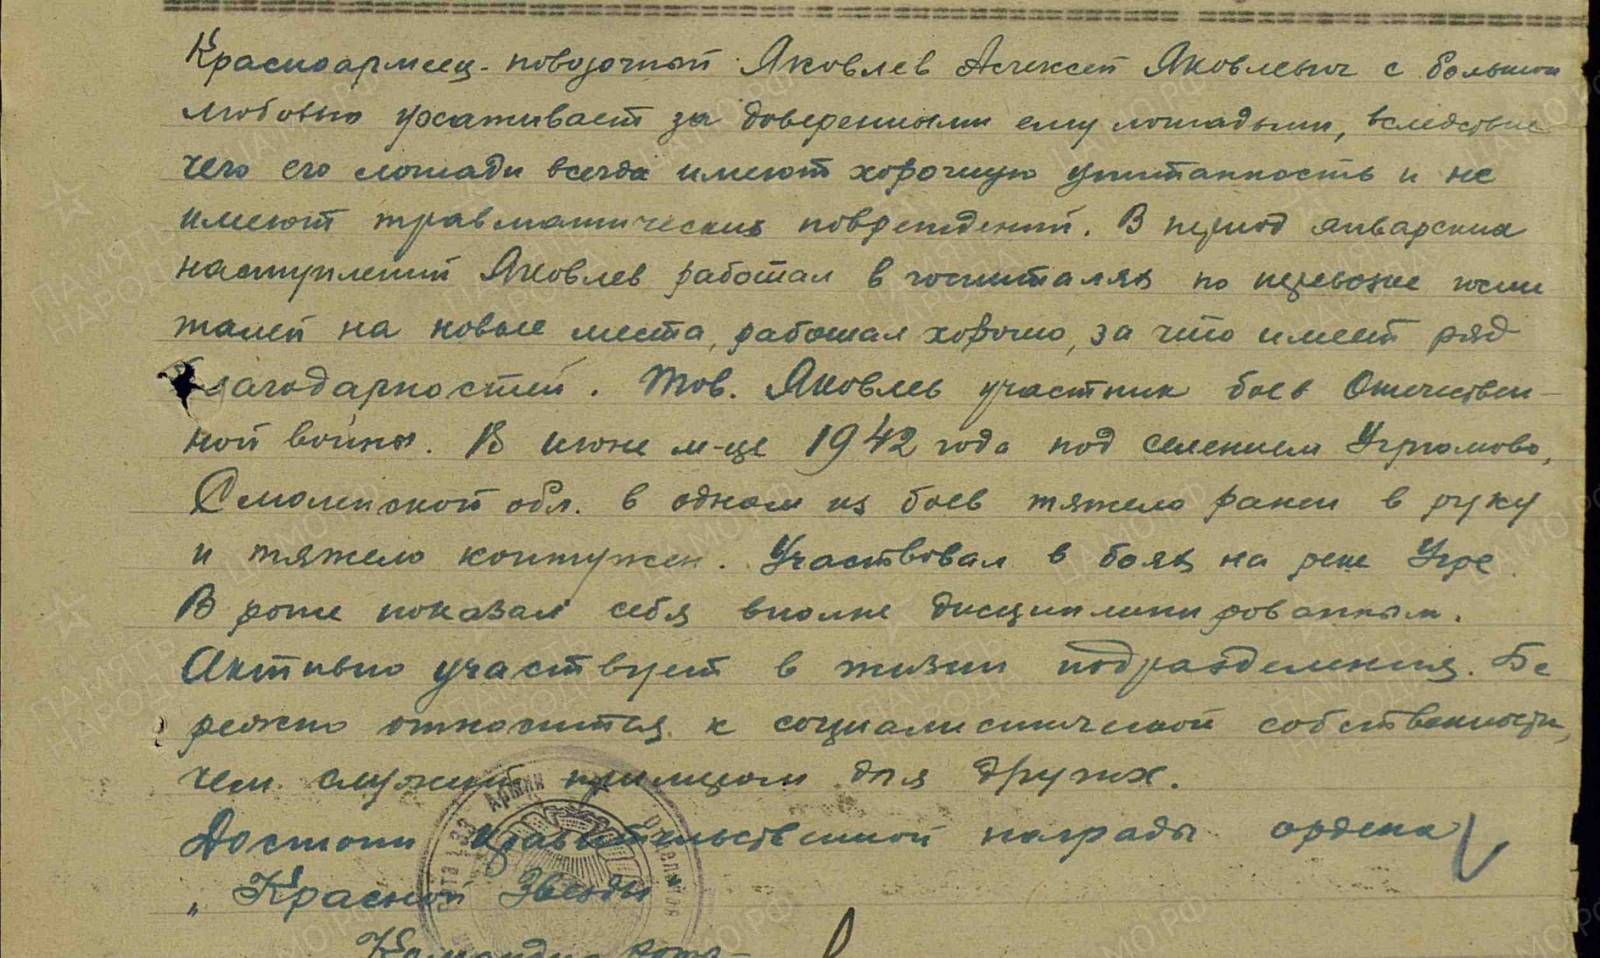 Красноармеец-повозочный Яковлев Алексей Яковлевич с большой
любовью ухаживает за доверенными ему лошадьми, вследствие
чего его лошади всегда имеют хорошую упитанность и не
имеют травматических повреждений. В период январских
наступлений Яковлев работал в госпиталях по перевозке госпи
талей на новые места, работал хорошо, за что имеет ряд
благодарностей. Тов. Яковлев участник боев Отечествен-
ной войны. В июне м-це 1942 года под селением Угрюмово,
Смоленской обл. в одном из боев тяжело ранен в руку
и тяжело контужен. Участвовал в боях на реке Угре
В роте показал себя вполне дисциплинированным.
Активно участвует в жизни подразделения. Бе
режно относится к социалистической собственности,
чем служит примером для других.
Достоин правительственной награды ордена
„Красной Звезды
Командир роты-
33 Армии
ПАМЯТЬ НАРОДА
ЦАМО.РФ